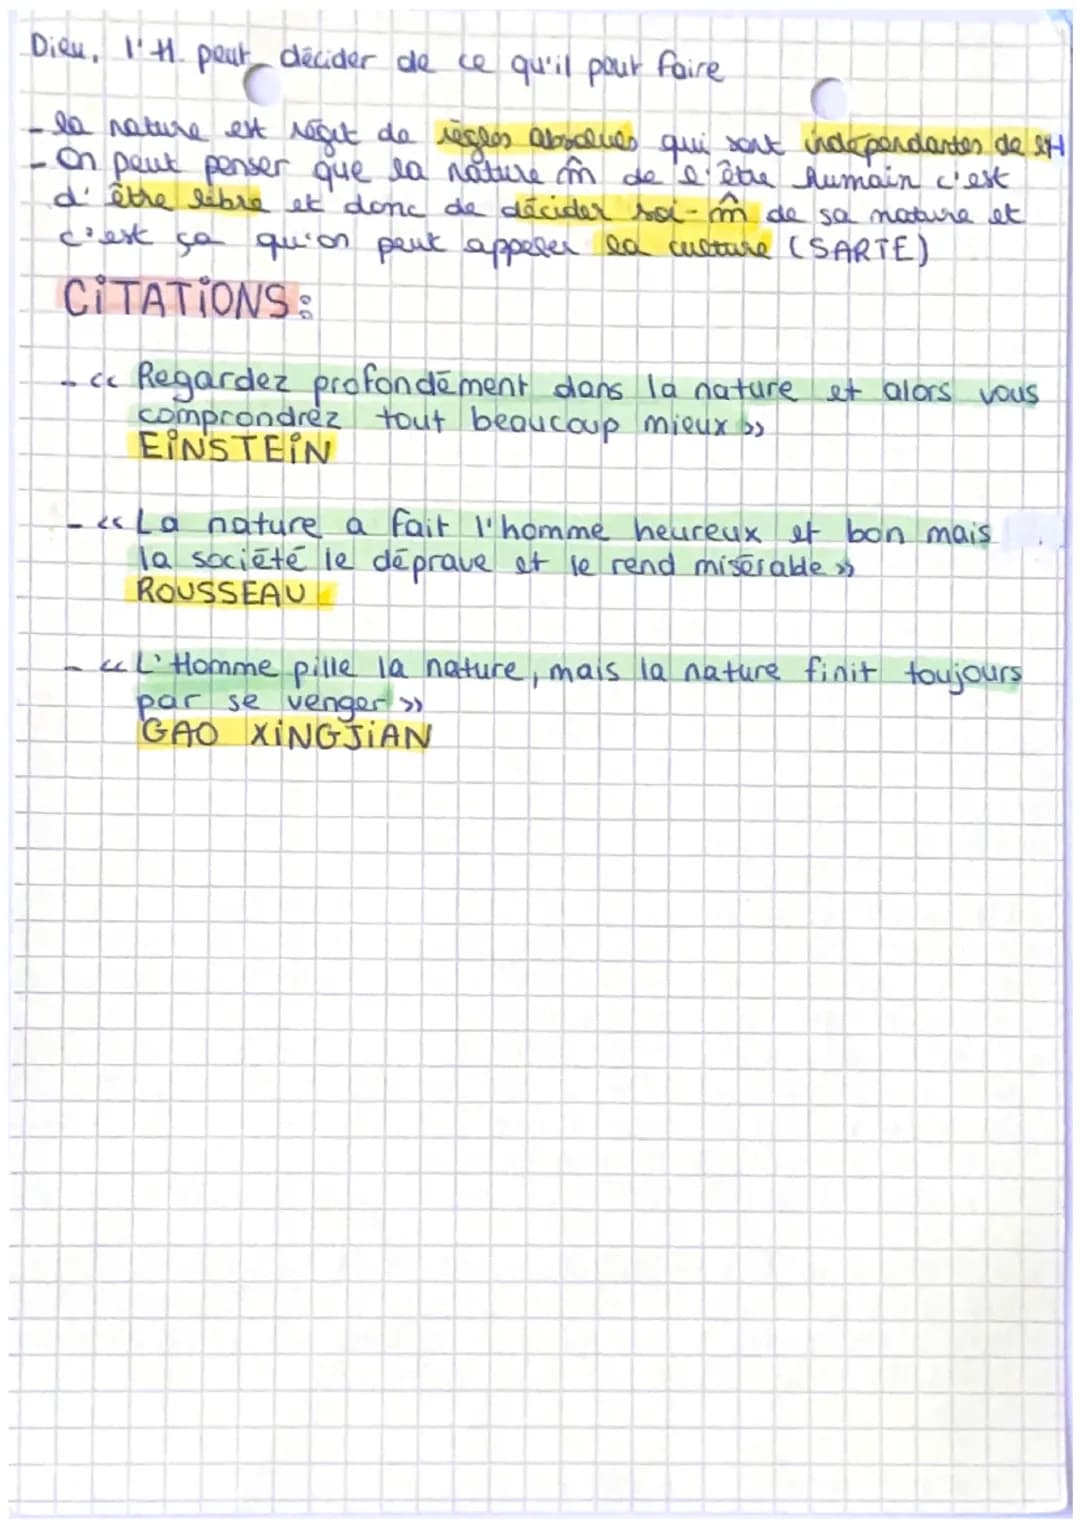 Dieu, l'H. peut décider de ce qu'il peut faire
- la nature est régit de règles absolues qui sont indépendantes de l'H
- On peut penser que la nature m̂ de l'être humain c'est
d'être libre et donc de décider soi-m̂ de sa nature et
c'est ça qu'on peut appeler la culture (SARTE)
CITATIONS:
- << Regardez profondément dans la nature et alors vous
comprendrez tout beaucoup mieux >>
EINSTEIN
- << La nature a fait l'homme heureux et bon mais
la société le déprave et le rend misérable >>
ROUSSEAU
- << L'Homme pille la nature, mais la nature finit toujours
par se venger >>
GAO XINGJIAN